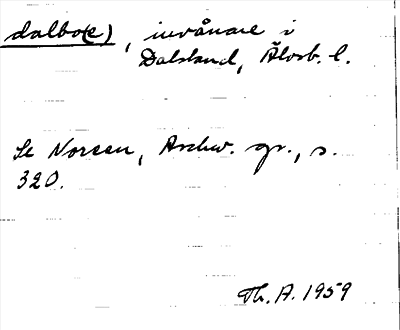 dalbo(e), invånare i
Dalsland, Älvsb. l.
Se Noreen, Aschw. gr., s.
320.
Th. A. 1959